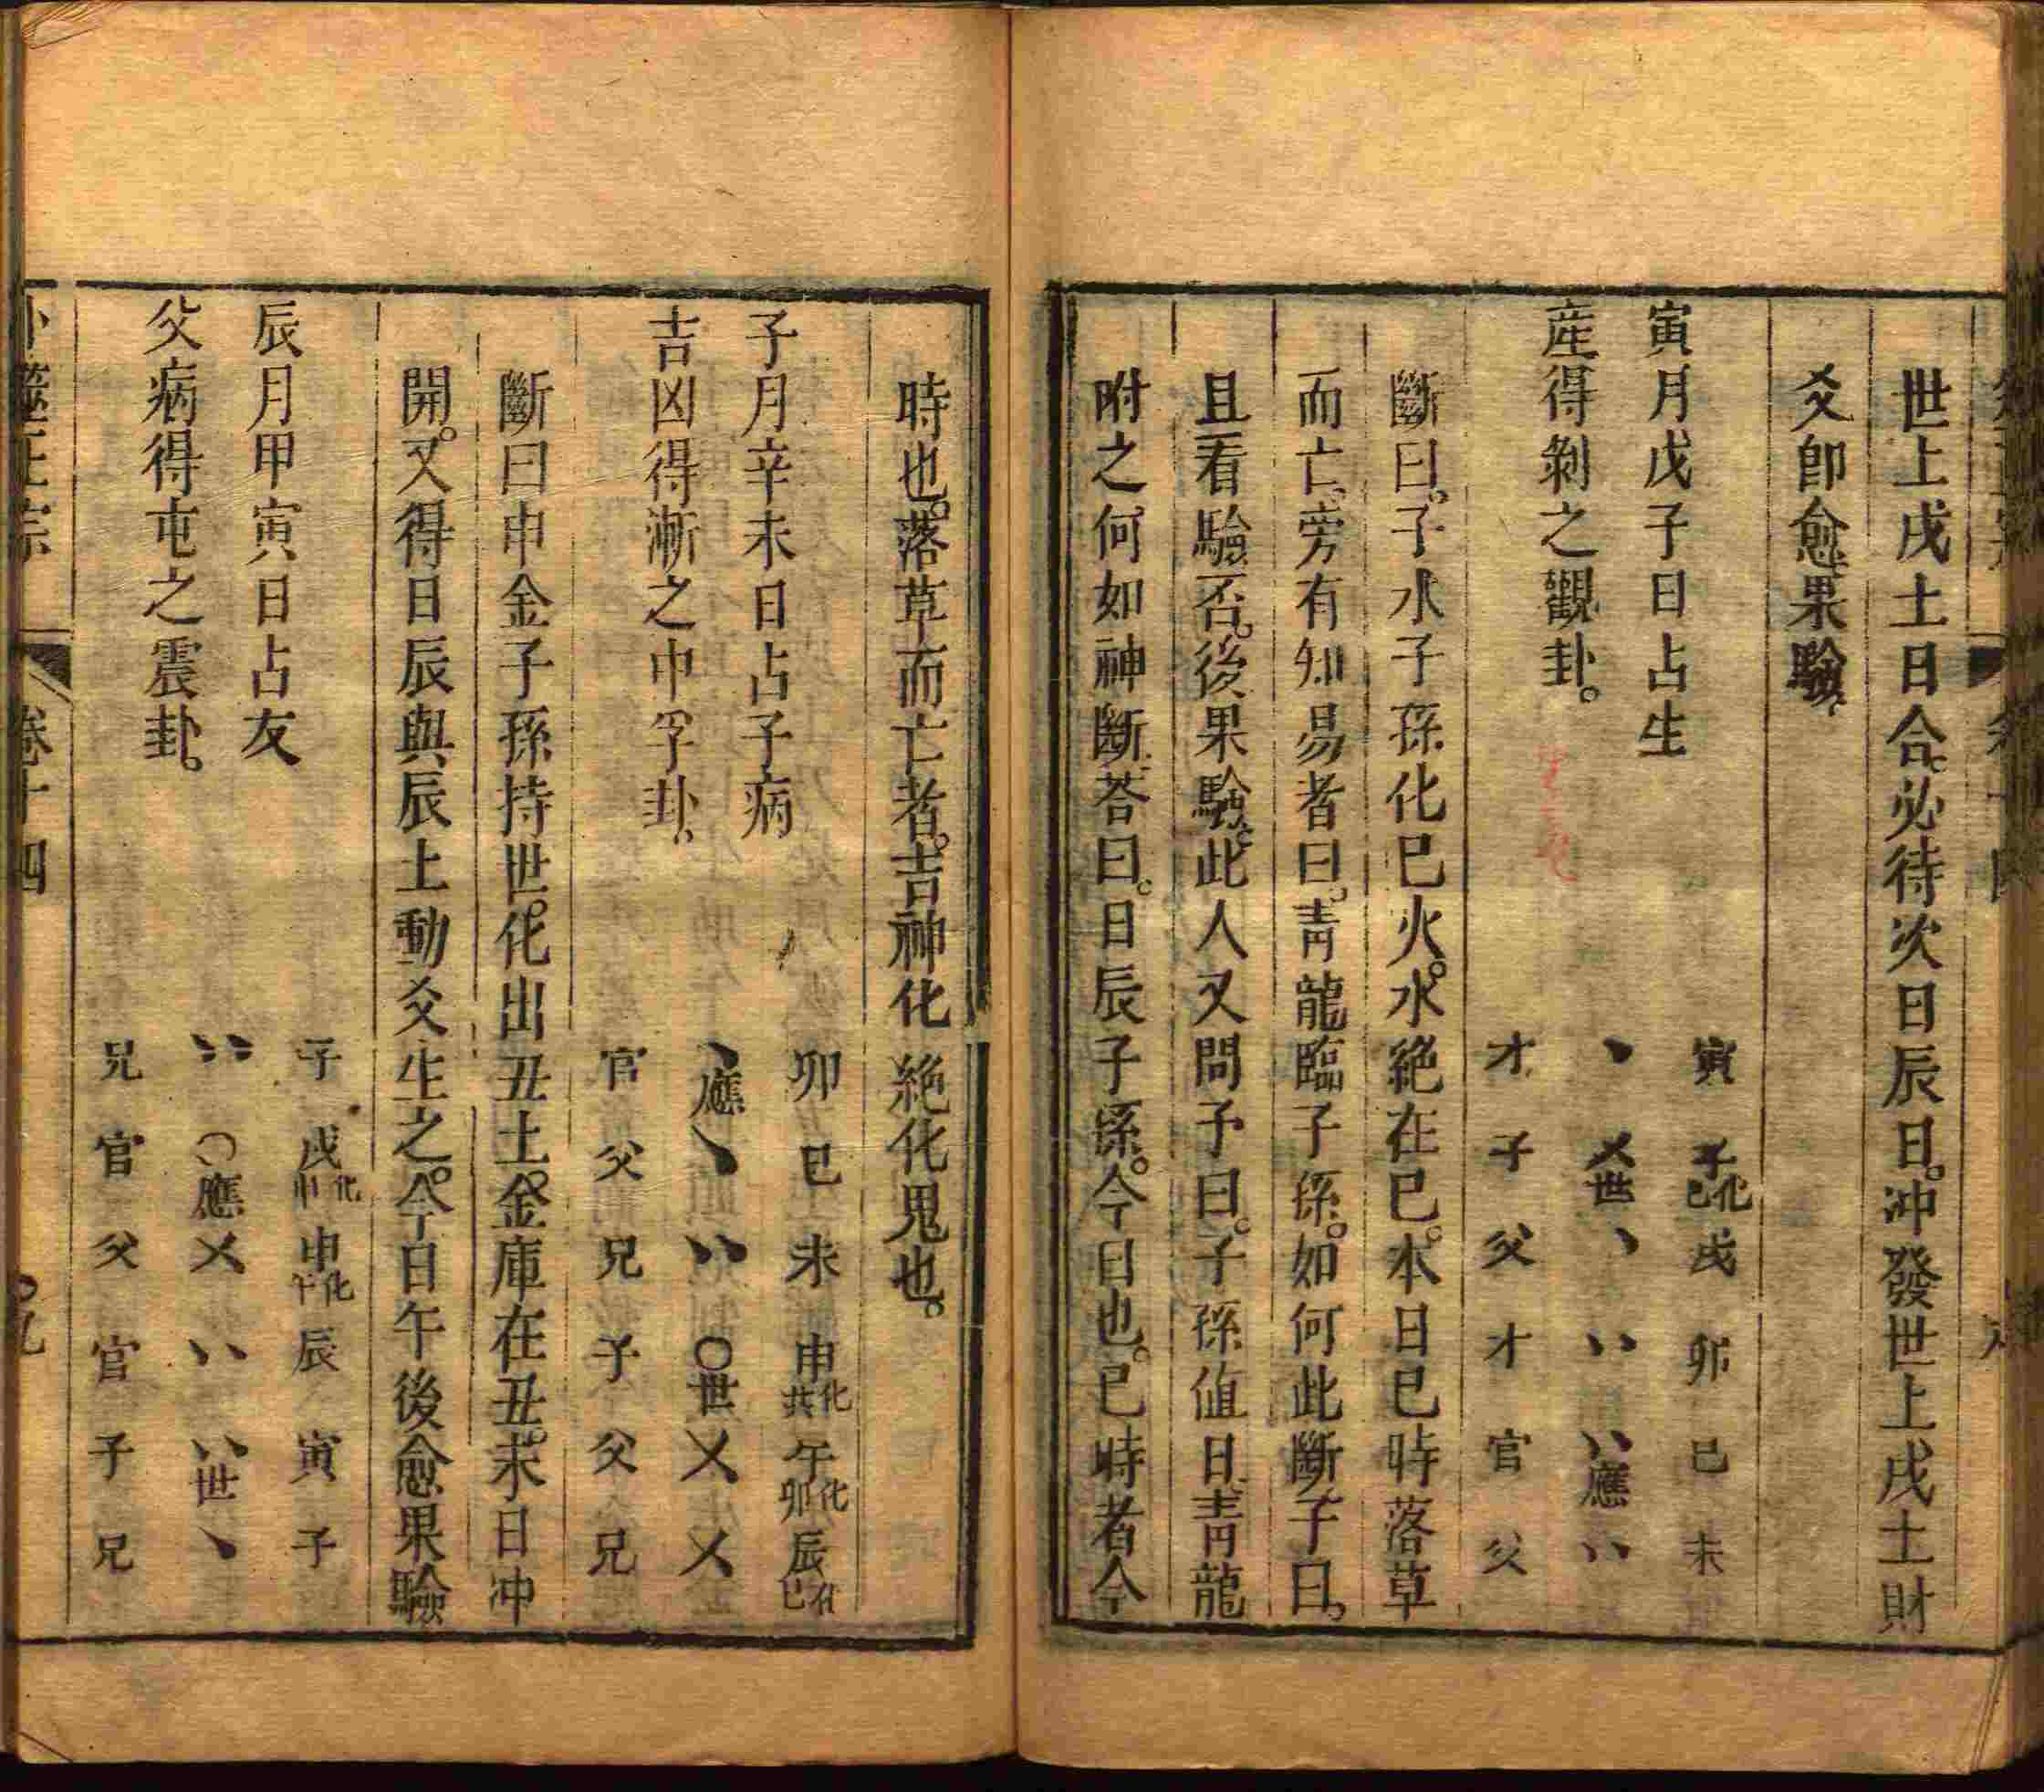 世上戌土日合。必待次日辰日。冲發世上戌土財
爻卽愈果驗、
寅月戊子日占生
產得剝之觀卦。
寅 子化巳 戌 卯 巳 未
丶 乂世 丶 丷 丷應 丷
才 子 父 才 官 父
斷曰。子水子孫化巳火。水絕在巳。本日巳時落草
而亡、旁有知易者曰。青龍臨子孫。如何此斷子曰。
且看驗否。後果驗。此人又問予曰。子孫值日、青龍
附之何如神斷、荅曰。日辰子孫。今日也。巳時者今
時也。落草而亡者。吉神化絕化鬼也。
子月辛未日占子病
吉凶得漸之中孚卦、
卯 巳 未 申化丑 午化卯 辰化巳
丶應 丶 丷 〇世 乂 乂
官 父 兄 子 父 兄
斷曰申金子孫持世。化出丑土。金庫在丑。未日冲
開。又得日辰與辰土動爻生之。今日午後愈果驗
辰月甲寅日占友
父病得屯之震卦。
子 戌化申 申化午 辰 寅 子
丷 〇應 乂 丷 丷世 丶
兄 官 父 官 子 兄
卜筮正宗 卷十四 九